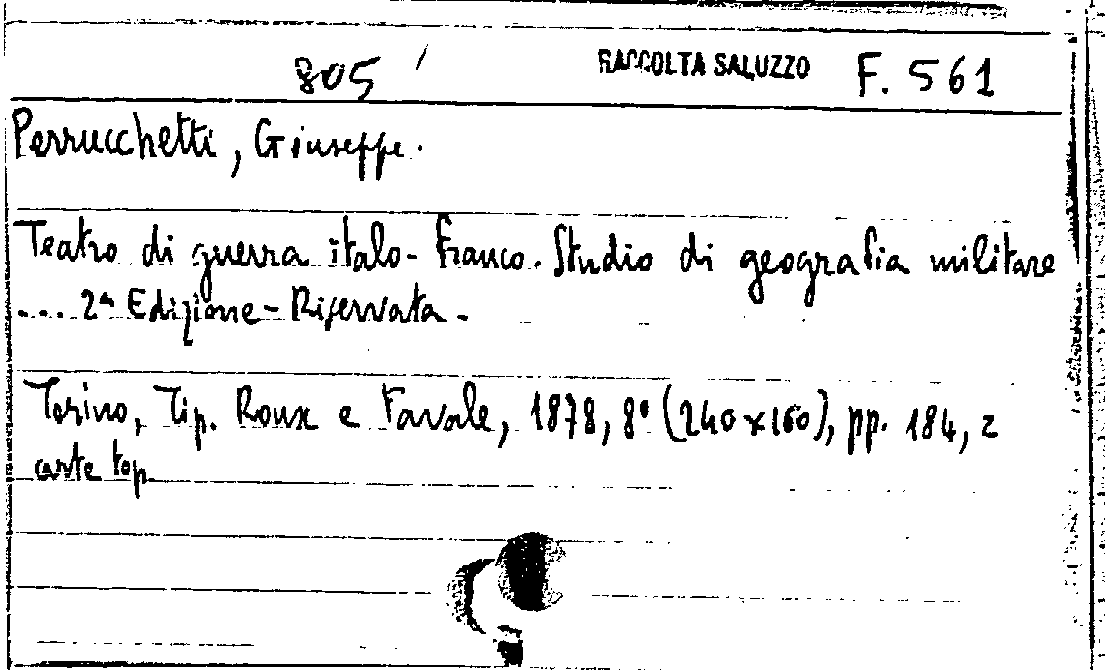 805 / RACCOLTA SALUZZO F. 561
Perrucchetti, Giuseppe.
Teatro di guerra italo-franco. Studio di geografia militare
.... 2ª Edizione - Riservata -
Torino, Tip. Roux e Favale, 1878, 8° (240x160), pp. 184, 2
carte top.